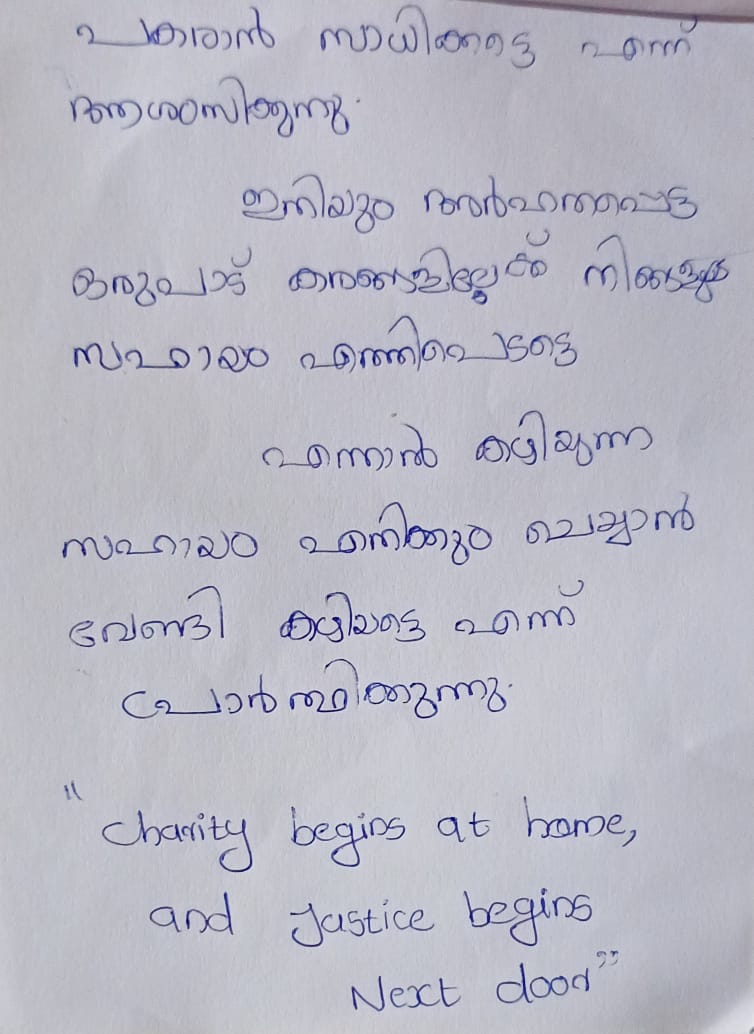 പകരാൻ സാധിക്കട്ടെ എന്ന്
ആശംസിക്കുന്നു.
ഇനിയും അർഹതപ്പെട്ട
ഒരുപാട് കരങ്ങളിലേക്ക് നിങ്ങളുടെ
സഹായം എത്തിപെടട്ടെ
എന്നാൽ കഴിയുന്ന
സഹായം എനിക്കും ചെയ്യാൻ
വേണ്ടി കഴിയട്ടെ എന്ന്
പ്രാർത്ഥിക്കുന്നു.
"Charity begins at home,
and Justice begins
Next door"